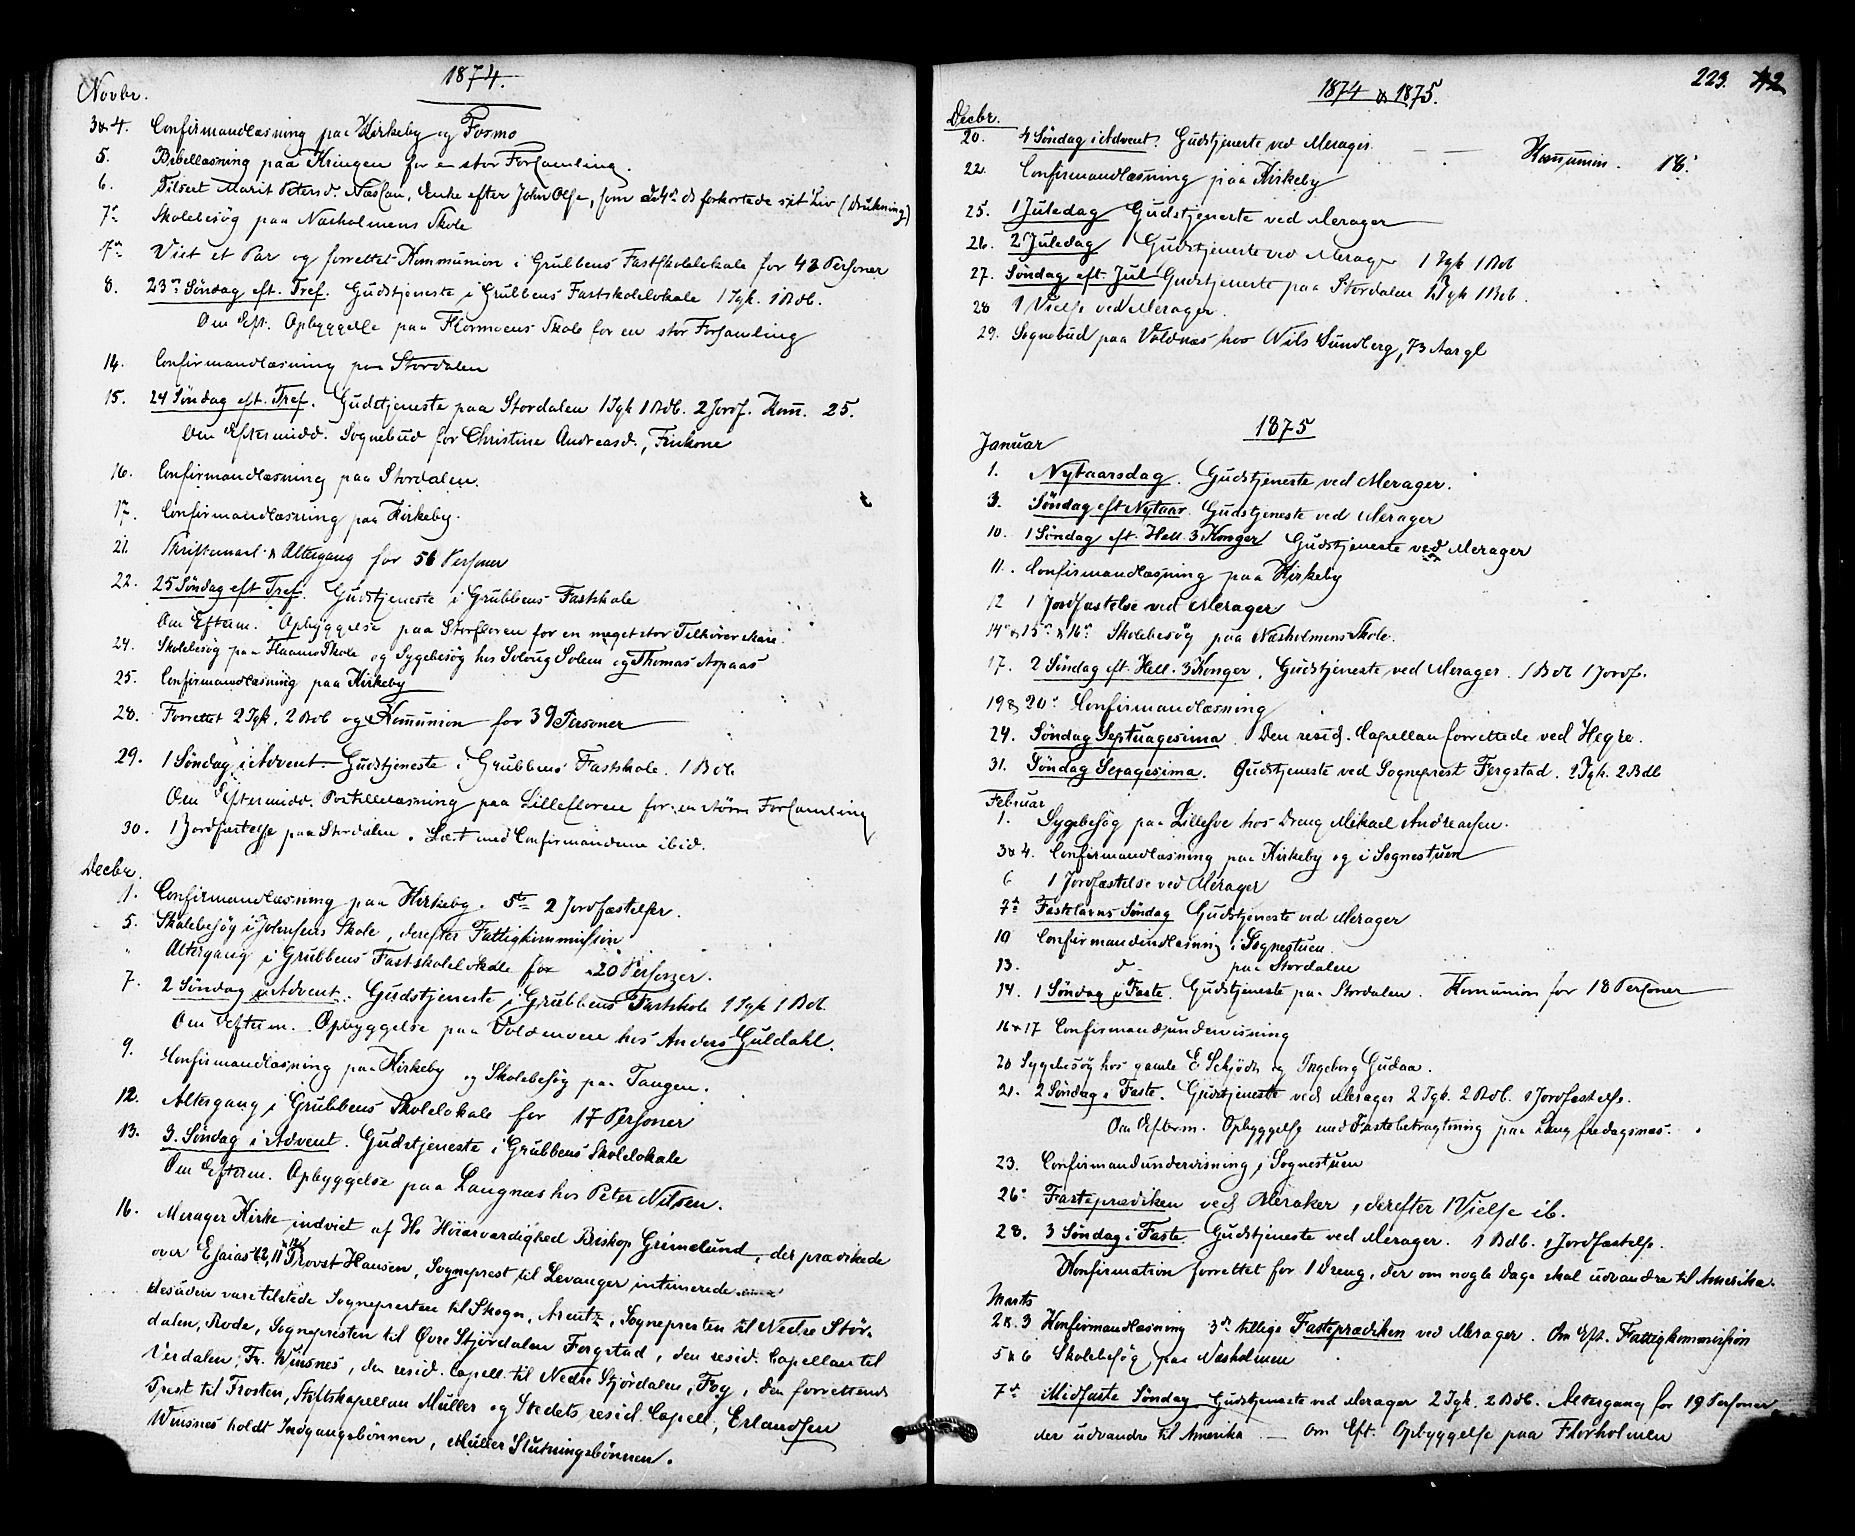 1874.
Novbr.
3 & 4. Confirmandlæsning paa Kirkeby og Formo
5. Bibellæsning paa Kringen for en stor Forsamling.
6. Tilseet Marit Petersd. Næslan, Enke efter John Olss., som d 4de ds forkortede sit Liv (Drukning)
7de Skolebesøg paa Næsholmens Skole
7de Viet et Par og forrettet Kommunion i Grubbens Fastskolelokale for 43 Personer
8. 23de Søndag eft. Tref. Gudstjeneste i Grubbens Fastskolelokale 1 Igk. 1 Bdb.
Om Eft. Opbyggelse paa Flormoens Skole for en stor Forsamling
14. Confirmandlæsning paa Stordalen
15. 24 Søndag eft. Tref. Gudstjeneste paa Stordalen 1 Igk 1 Bdb. 2 Jordf. Kom. 25.
Om Eftermidd. Sognebud for Christine Andreasd.,
16. Confirmandlæsning paa Stordalen.
17. Confirmandlæsning paa Kirkeby.
21. Skriftemaal & Altergang for 56 Personer
22. 25 Søndag eft Tref. Gudstjeneste i Grubbens Fastskole
Om Efterm. Opbyggelse paa Storfloren for en meget stor Tilhørerskare.
24. Skolebesøg paa Flaamo Skole og Sygebesøg hos Solvug Solem og Thomas Aspaas
25. Confirmandlæsning paa Kirkeby
28. Forrettet 2 Igk, 2 Bdb og Kommunion for 39 Personer
29. 1 Søndag i Advent Gudstjeneste i Grubbens Fastskole. 1 Bdb.
Om Eftermidd. Postillelæsning paa Lillefloren for en større Forsamling
30. 1 Jordfæstelse paa Stordalen. Læst med Confirmanderne ibid.
Decbr.
1. Confirmandlæsning paa Kirkeby. 5te 2 Jordfæstelser.
5. Skolebesøg i Johnsens Skole, derefter Fattigkommission
" Altergang i Grubbens Fastskolelokale for 20 Personer.
7. 2 Søndag i Advent. Gudstjeneste i Grubbens Fastskole 1 Igk 1 Bdb.
Om Efterm. Opbyggelse paa Voldmoen hos Anders Guldahl.
9. Confirmandlæsning paa Kirkeby og Skolebesøg paa Tangen.
12. Altergang i Grubbens Skolelokale for 17 Personer
13. 3. Søndag i Advent. Gudstjeneste i Grubbens Skolelokale
Om Efterm. Opbyggelse paa Langnæs hos Peter Nilsen.
16. Merager Kirke indviet af Hs Høiærværdighed Biskop Grimelund, der prædikede
over Esaias 12, 11 & 12 Provst Hansen, Sogneprest til Levanger intimerede
desuden vare tilstede Sognepresten til Skogn, Arentz, Sognepresten til Nedre Stør-
dalen, Rode, Sognepresten til Øvre Stjørdalen Fergstad, den resid. Capellan til
Verdalen, Fr. Winsnes, den resid. Capell. til Nedre Stjørdalen, Fog, den forrettende
Prest til Frosten, Stiftskapellan Müller og Stedets resid. Capell, Erlandsen
Winsnes holdt Indgangsbønnen, Müller Slutningsbønnen.
1874 & 1875.
223. 42
Decbr.
20. 4 Søndag i Advent. Gudstjeneste ved Merager. — — Kommunion. 18.
22. Confirmandlæsning paa Kirkeby
25. 1 Juledag Gudstjeneste ved Merager
26. 2 Juledag Gudstjeneste ved Merager 1 Igk 1 Bdb
27. Søndag eft. Jul Gudstjeneste paa Stordalen 1 Igk 1 Bdb.
28 1 Vielse ved Merager.
29. Sognebud paa Voldnæs hos Nils Sundberg, 73 Aar gl
1875
Januar
1. Nytaarsdag. Gudstjeneste ved Merager.
3. Søndag eft Nytaar. Gudstjeneste ved Merager
10. 1 Søndag eft. Hell. 3 Konger Gudstjeneste ved Merager
11. Confirmandlæsning paa Kirkeby
12 1 Jordfæstelse ved Merager
14de & 15de & 16de Skolebesøg paa Næsholmens Skole.
17. 2 Søndag eft. Hell. 3 Konger. Gudstjeneste ved Merager. 1 Bdb 1 Jordf.
19 & 20de Confirmandlæsning
24. Søndag Septuagesima. Den resid. Capellan forrettede ved Hegre.
31. Søndag Sexagesima. Gudstjeneste ved Sogneprest Fergstad. 2 Igk. 2 Bdb
Februar
1. Sygebesøg paa Lillesve hos Dreng Mikael Andreassen.
3 & 4. Confirmandlæsning paa Kirkeby og i Sognestuen
6 1 Jordfæstelse ved Merager
7de Fastelavns Søndag Gudstjeneste ved Merager
10 Confirmandlæsning i Sognestuen
13. do paa Stordalen
14. 1 Søndag i Faste. Gudstjeneste paa Stordalen. Komunion for 18 Personer
16 & 17 Confirmandundervisning
20 Sygebesøg hos gamle E Schjødt og Ingeborg Gudaa.
21. 2 Søndag i Faste. Gudstjeneste ved Merager 2 Igk. 2 Bdb. 1 Jordfæstelse.
Om Efterm. Opbyggelse med Fastebetragtning paa Langfredagsnæs.
23. Confirmandundervisning i Sognestuen
26de Fasteprædiken ved Meraker, derefter 1 Vielse ib.
28. 3 Søndag i Faste. Gudstjeneste ved Merager. 1 Bdb. 1 Jordfæstelse.
Konfirmation forrettet for 1 Dreng, der om nogle Dage skal udvandre til Amerika.
Marts
2 & 3 Konfirmandlæsning 3de tillige Fasteprædiken ved Merager. Om Eft. Fattigkommission
5 & 6 Skolebesøg paa Næsholmen
7de Midfaste Søndag Gudstjeneste ved Merager 2 Igk. 2 Bdb. Altergang for 19 Personer
der udvandre til Amerika — Om Eft. Opbyggelse paa Florholmen